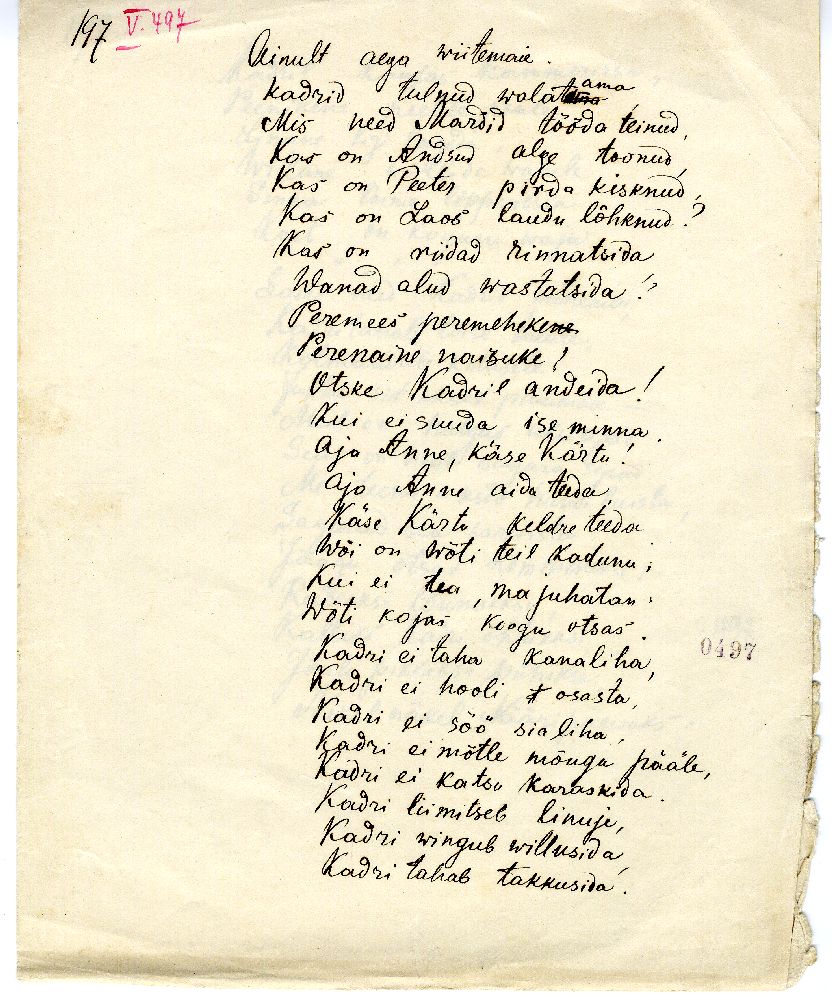 197 V. 497
Ainult aega wiitemaie.
Kadrid tulnud walatama,
Mis need Mardid tööda teinud,
Kas on Andsud alge toonud,
Kas on Peeter pirda kisknud,
Kas on Laos laudu lõhknud?
Kas on riidad rinnatsida
Wanad alud wastatsida!?
Peremees peremeheke
Perenaine naisuke!
Otske Kadril andeida!
Kui ei suuda ise minna.
Aja Anne, käse Kärtu!
Aja Anne aida teeda,
Käse Kärtu keldre teeda
Wõi on wõti teil kadunu;
Kui ei tea, ma juhatan:
Wõti kojas koogu otsas.
Kadri ei taha kanaliha,
0497
Kadri ei hooli osasta,
Kadri ei söö sialiha,
Kadri ei mõtle mõugu pääle,
Kadri ei katsu karaskida.
Kadri liimitseb linuje,
Kadri wingub willusida,
Kadri tahab takkusida.